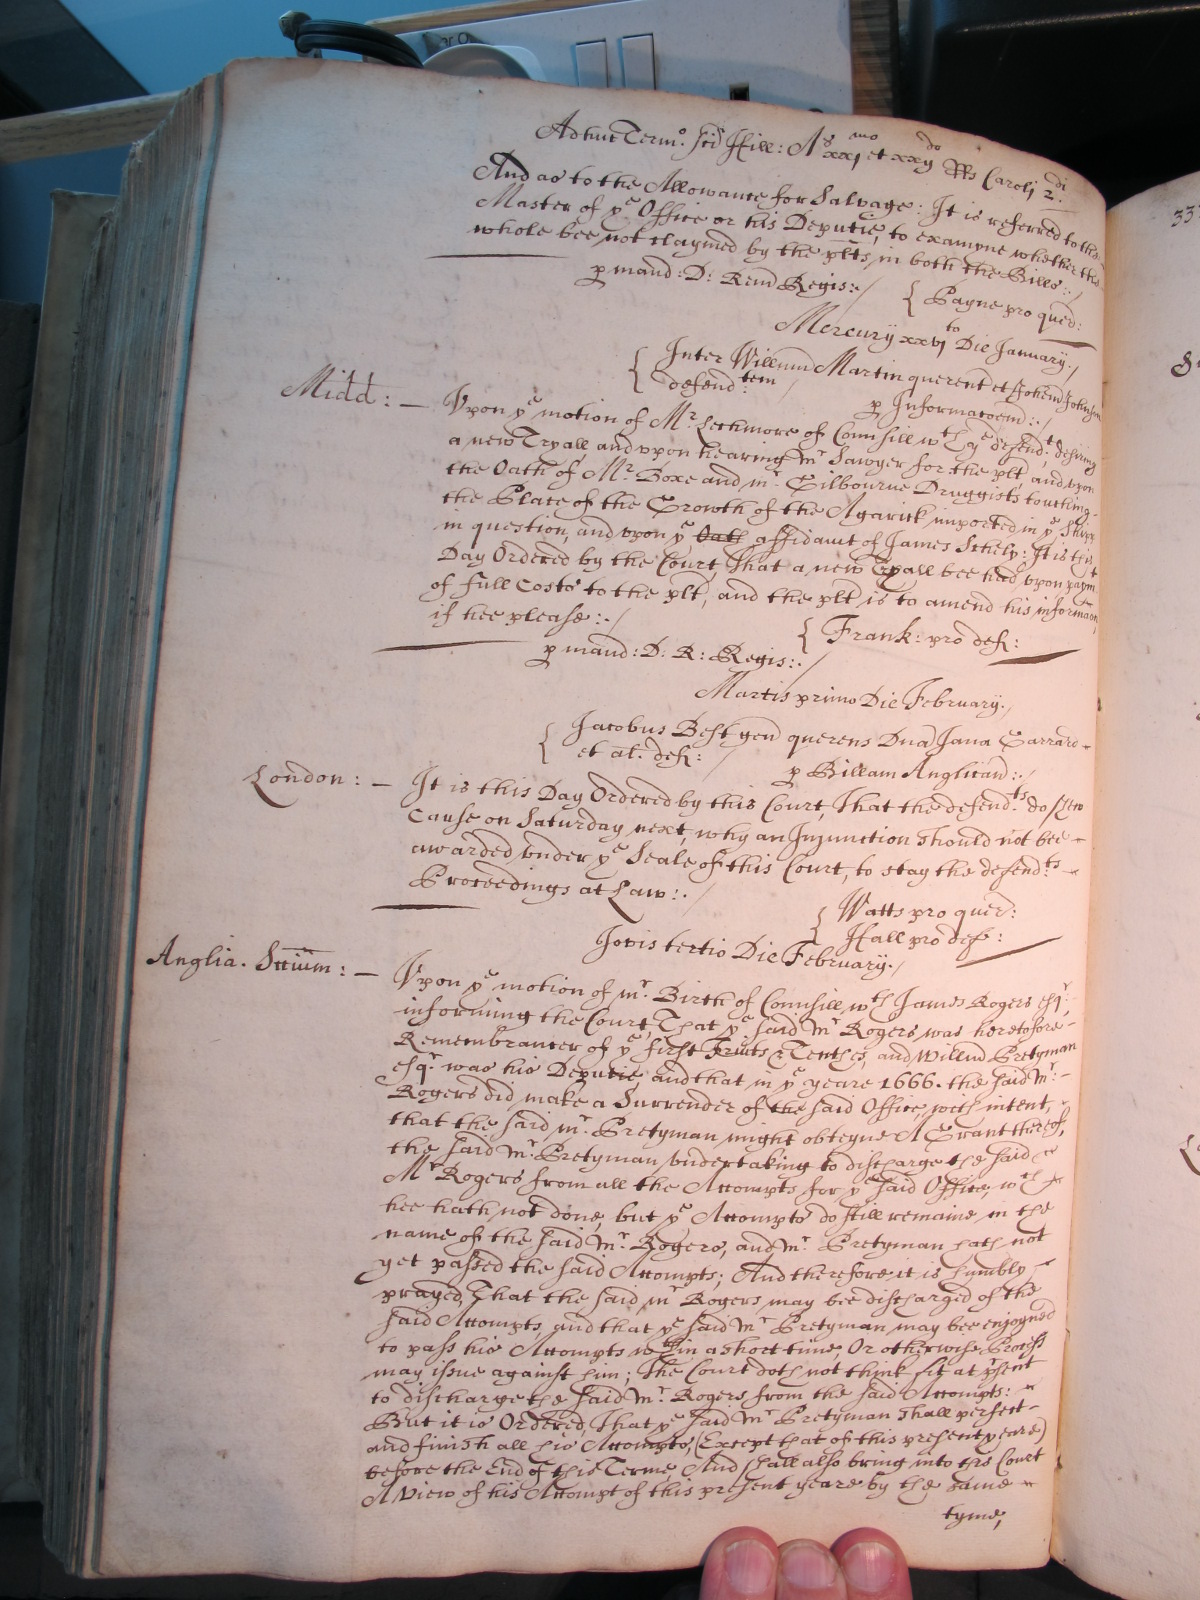 Adhuc Termo. Sci Hill: Ao xxjmo et xxijdo RRs Caroli 2di.
And as to the Allowance for Salvage: It is referred to the
Master of ye Office or his Deputie, to examyne whether the
whole bee not claymed by the plts, in both the Bills:./
p mand: D: Rem Regis:./
{ Payne pro quer:
Mercurij xxvjto Die January./
{ Inter Willmum Martin querent et Johem Johnson
defendtem
p Informacoem:./
Midd: — Vpon ye motion of Mr. Lechmore of Counsill wth ye defendt. desiring
a new Tryall and vpon hearing mr Sawyer for the plt, and vpon
the Oath of Mr. Boxe and mr. Gilbourne Druggists touching
the Place of the Growth of the Agarick imported in ye Shipp
in question, and vpon ye Oath affidavit of James Schely: It is this
Day Ordered by the Court, That a new Tryall bee had vpon paymt
of full Costs to the plt, and the plt is to amend his informacon,
if hee please:./
{ Frank: pro def:
p mand: D: R: Regis:./
Martis primo Die February./
{ Jacobus Best gen querens Dna Jana Garrard
et al. def:
p Billam Anglican:./
London: — It is this Day Ordered by this Court, That the defendts. do shew
Cause on Saturday next, why an Injunction should not bee
awarded vnder ye Seale of this Court, to stay the defendts
Proceedings at Law:./
{ Watts pro quer:
Hall pro def:
Jovis tertio Die February./
Anglia. — Vpon ye motion of mr. Birch of Counsill wth James Rogers esqr.
informing the Court, That ye said Mr Rogers was heretofore
Remembrancer of ye first Fruits & Tenthes, and Willm Pretyman
esqr. was his Deputie, and that in ye yeare 1666. the said Mr.
Rogers did make a Surrender of the said Office, with intent,
that the said mr. Pretyman might obteyne A Grant thereof,
the said Mr. Pretyman vndertaking to discharge the said
Mr Rogers from all the Accompts for ye said Office, wch
hee hath not done, but ye Accompts do still remaine in the
name of the said Mr. Rogers, and Mr. Pretyman hath not
yet passed the said Accompts; And therefore it is humbly
prayed, That the said mr Rogers may bee discharged of the
said Accompts, and that ye said Mr Pretyman may bee enjoyned
to pass his Accompts within a short time, Or otherwise Process
may issue against him; The Court doth not think fit at psent
to discharge the said Mr. Rogers from the said Accompts:
But it is Ordered, That ye said Mr Pretyman shall perfect
and finish all his Accompts, (Except that of this present yeare)
before the End of this Terme, And shall also bring into this Court
A view of his Accompt of this present yeare by the same
tyme,
33